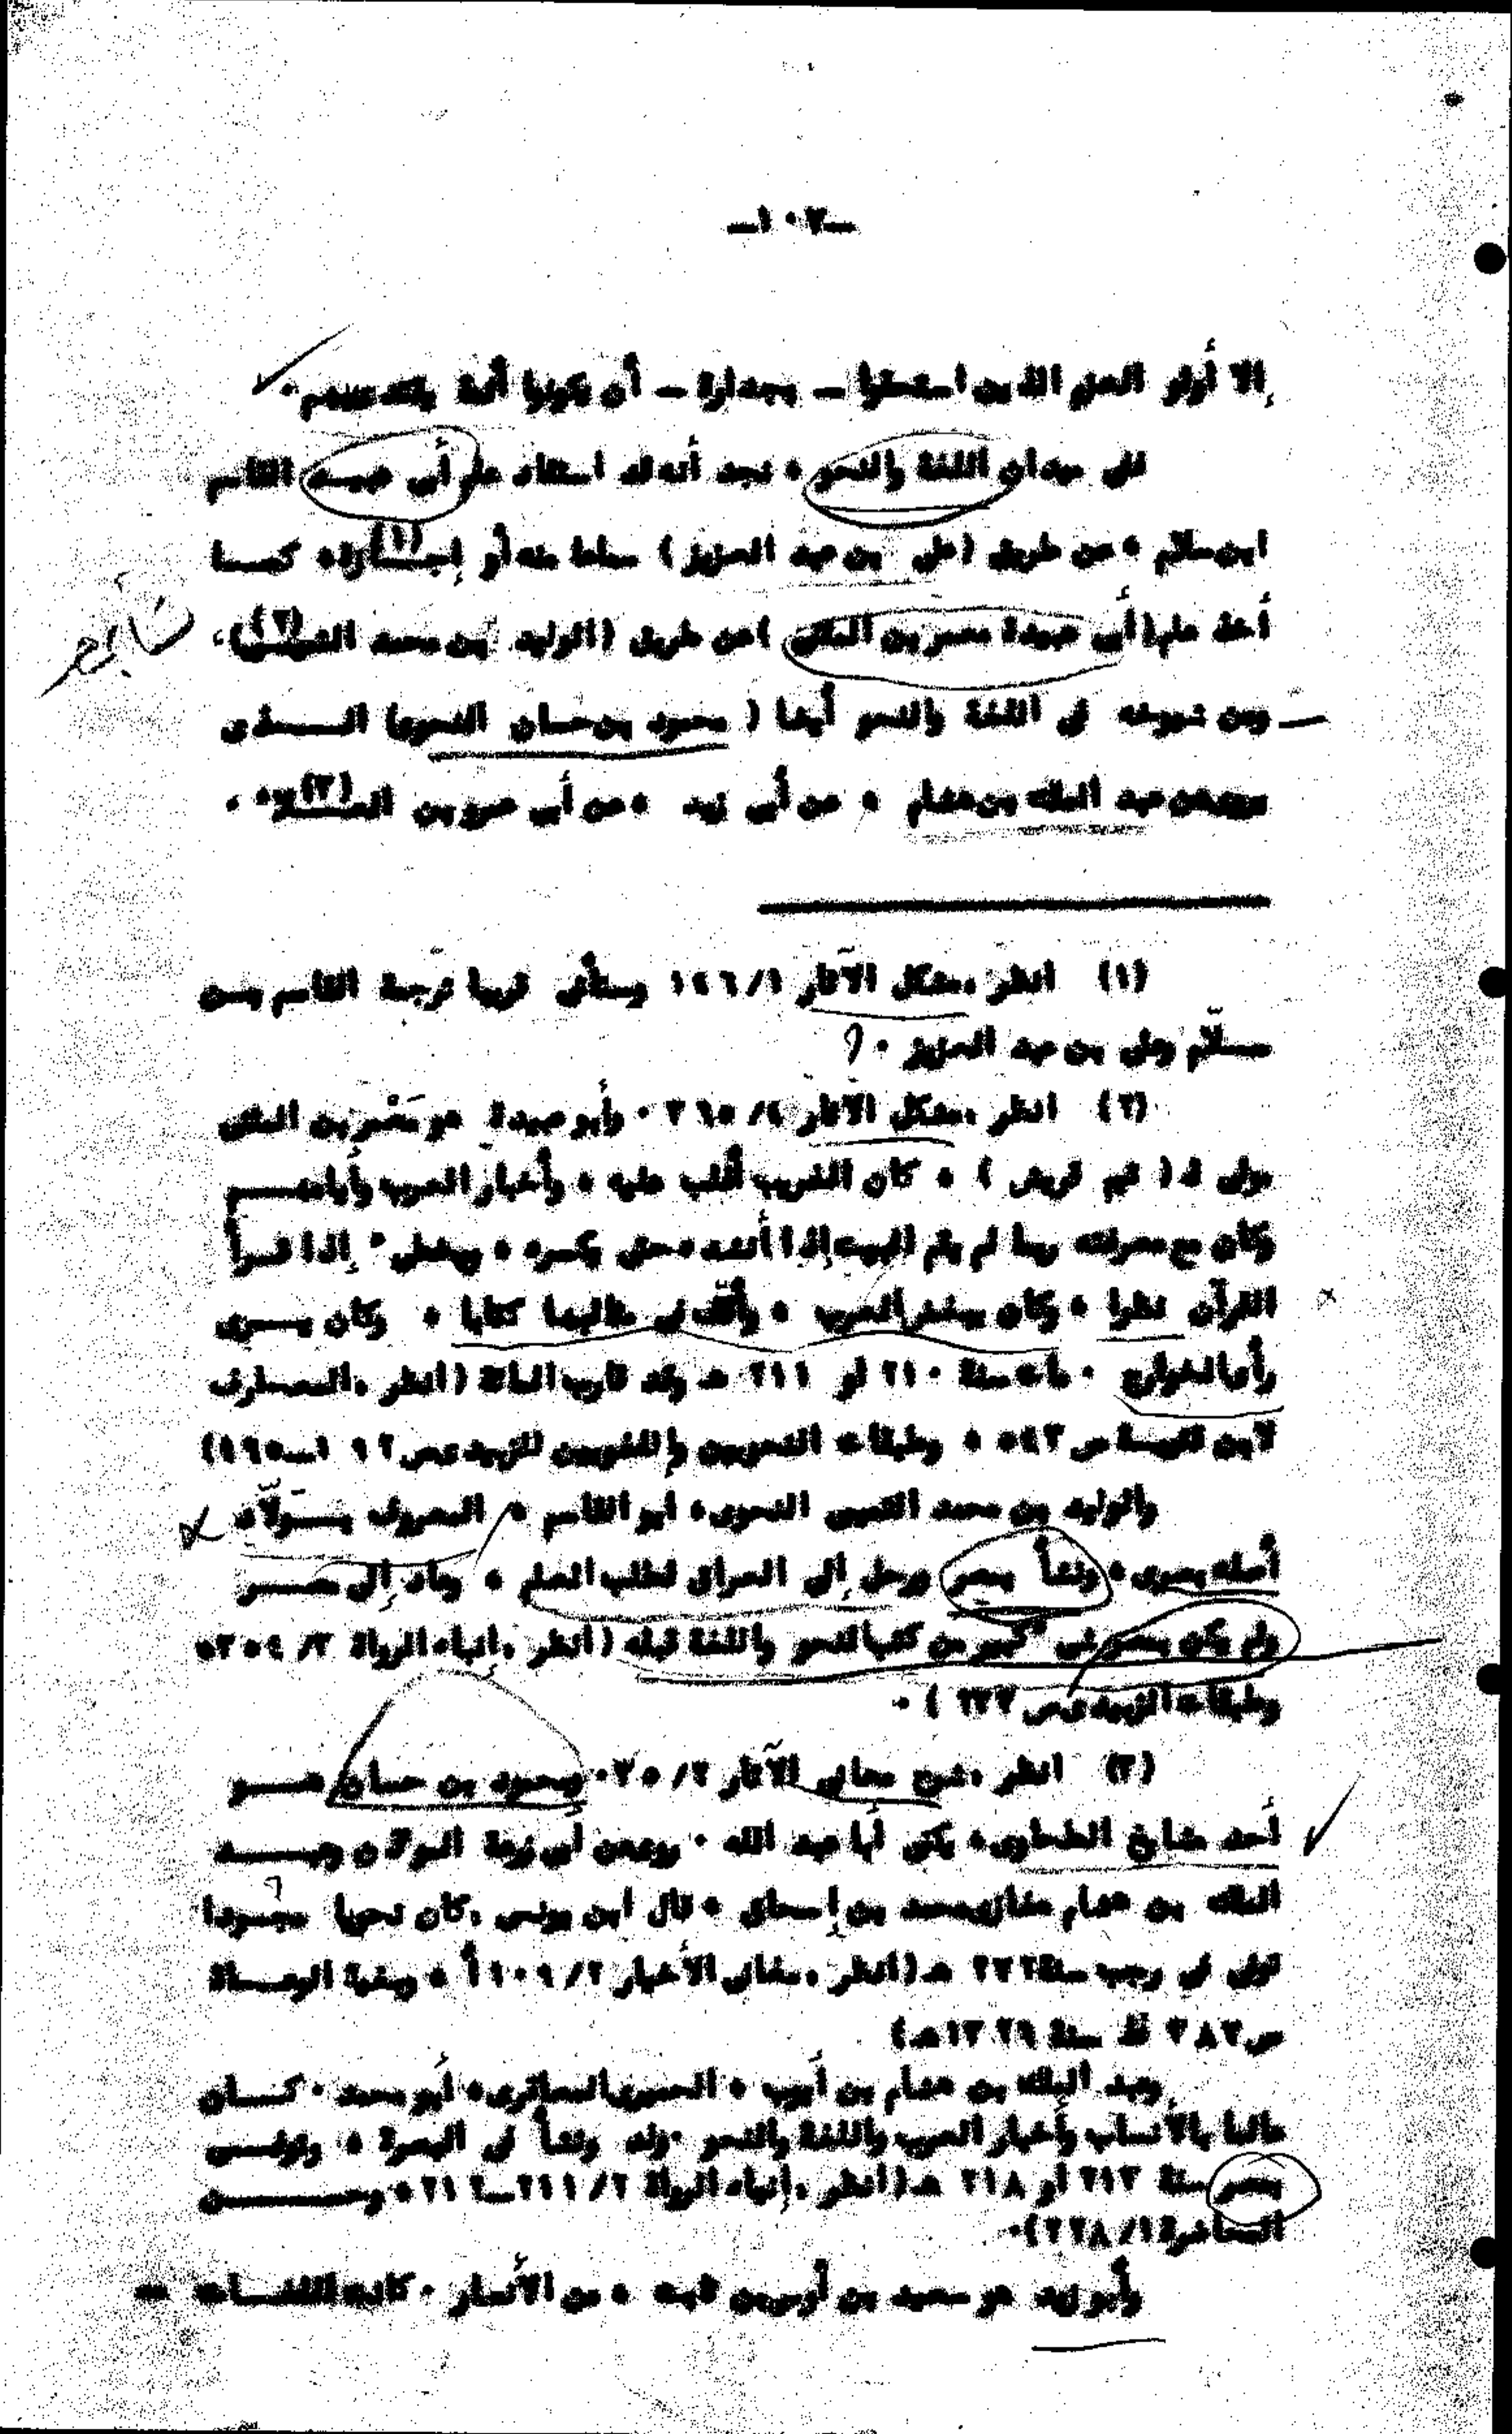 -١٠٧-
إلا أولو العزم الذين استحقوا – بجدارة – أن يكونوا أئمة يقتدى بهم .
ففي ميدان اللغة والنحو ، نجد أنه قد استفاد علم أبي عبيد القاسم
ابن سلام ، عن طريق (علي بن عبد العزيز) سماعا منه أو إجازة(١) ، كما
أخذ علم (أبي عبيدة معمر بن المثنى) عن طريق (الوليد بن محمد التميمي)(٢) .
ومن شيوخه في اللغة والنحو أيضا (محمود بن حسان النحوي) الذي
يروي عن عبد الملك بن هشام ، عن أبي زيد ، عن أبي عمرو بن العلاء(٣) .
(١) انظر ، مشكل الآثار ١٤٦/١ وستأتي قريبا ترجمة القاسم بن
سلّام وعلي بن عبد العزيز .
(٢) انظر ، مشكل الآثار ٤/ ٣٦٥ . وأبو عبيدة هو مَعْمَر بن المثنى
مولى لـ (تيم قريش) ، كان الغريب أغلب عليه ، وأخبار العرب وأيامهم
وكان مع معرفته ربما لم يقم البيت إذا أنشده حتى يكسره ، ويخطىء إذا قرأ
القرآن نظرا ، وكان يبغض العرب ، وألّف في مثالبها كتابا ، وكان يرى
رأى الخوارج . مات سنة ٢١٠ أو ٢١١ هـ وقد قارب المائة (انظر ، المعارف
لابن قتيبة ص ٥٤٣ ، وطبقات النحويين واللغويين للزبيدي ص ١٩٢ – ١٩٥)
والوليد بن محمد التميمي النحوي ، أبو القاسم ، المعروف بـولّاد
أصله بصري ، ونشأ بمصر ورحل إلى العراق لطلب العلم ، وعاد إلى مصر
ولم يكن بمصر شيء كبير من كتب النحو واللغة قبله (انظر ، إنباه الرواة ٣/ ٣٥٤ ،
وطبقات الزبيدي ص ٢٣٣) .
(٣) انظر ، شرح معاني الآثار ٢/ ٧٥ . ومحمود بن حسان هو
أحد مشايخ الطحاوي ، يكنى أبا عبد الله . روى عن أبي زرعة المؤذن وعبد
الملك بن هشام مغازي محمد بن إسحاق ، قال ابن يونس ، كان نحويا مجودا
توفي في رجب سنة ٢٧٢ هـ (انظر ، مغاني الأخيار ٢/ ٩٠٩ أ ، وبغية الوعاة
ص ٣٨٧ ط سنة ١٣٢٦ هـ)
وعبد الملك بن هشام بن أيوب ، الحميري المعافري ، أبو محمد . كان
عالما بالأنساب وأخبار العرب واللغة والنحو . ولد ونشأ في البصرة ، وتوفي
بمصر سنة ٢١٣ أو ٢١٨ هـ (انظر ، إنباه الرواة ٢/ ٢١١ – ٢١٢ ، وحسن
المحاضرة ١/ ٢٢٨) .
وأبو زيد هو سعيد بن أوس بن ثابت ، من الأنصار . كانت اللغات –